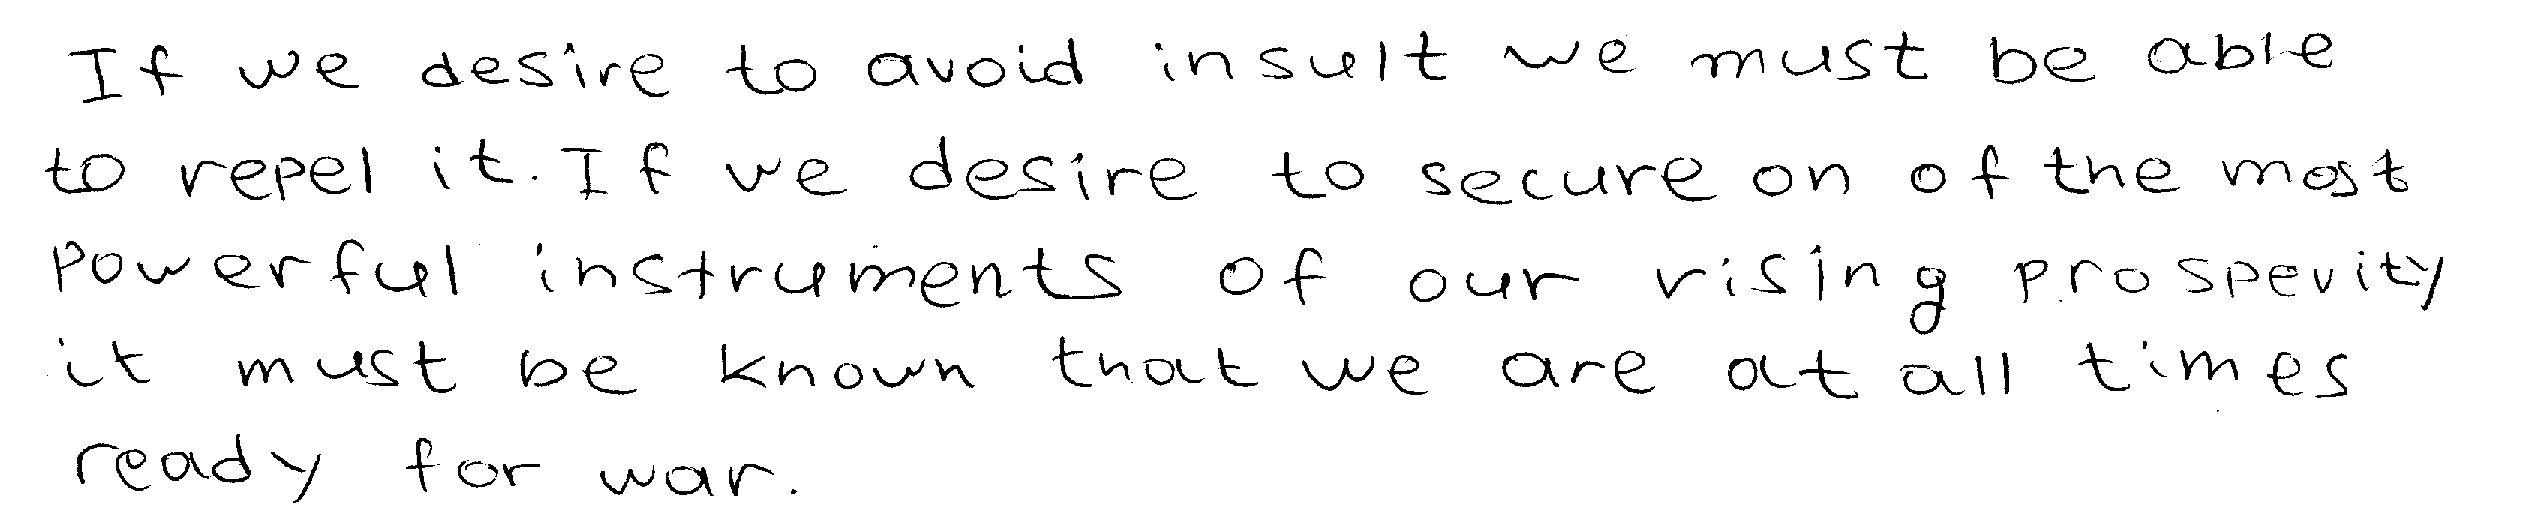 If we desire to avoid insult we must be able
to repel it. If we desire to secure on of the most
powerful instruments of our rising prosperity
it must be known that we are at all times
ready for war.